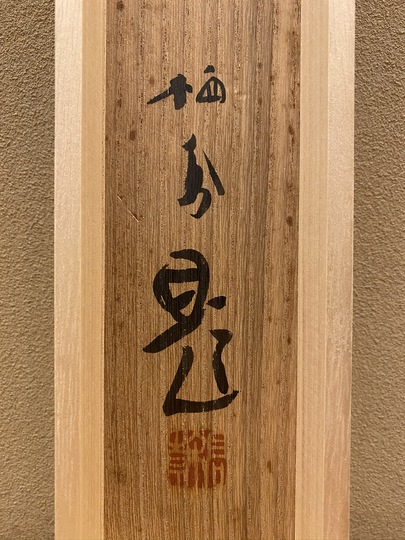 栖鳳題